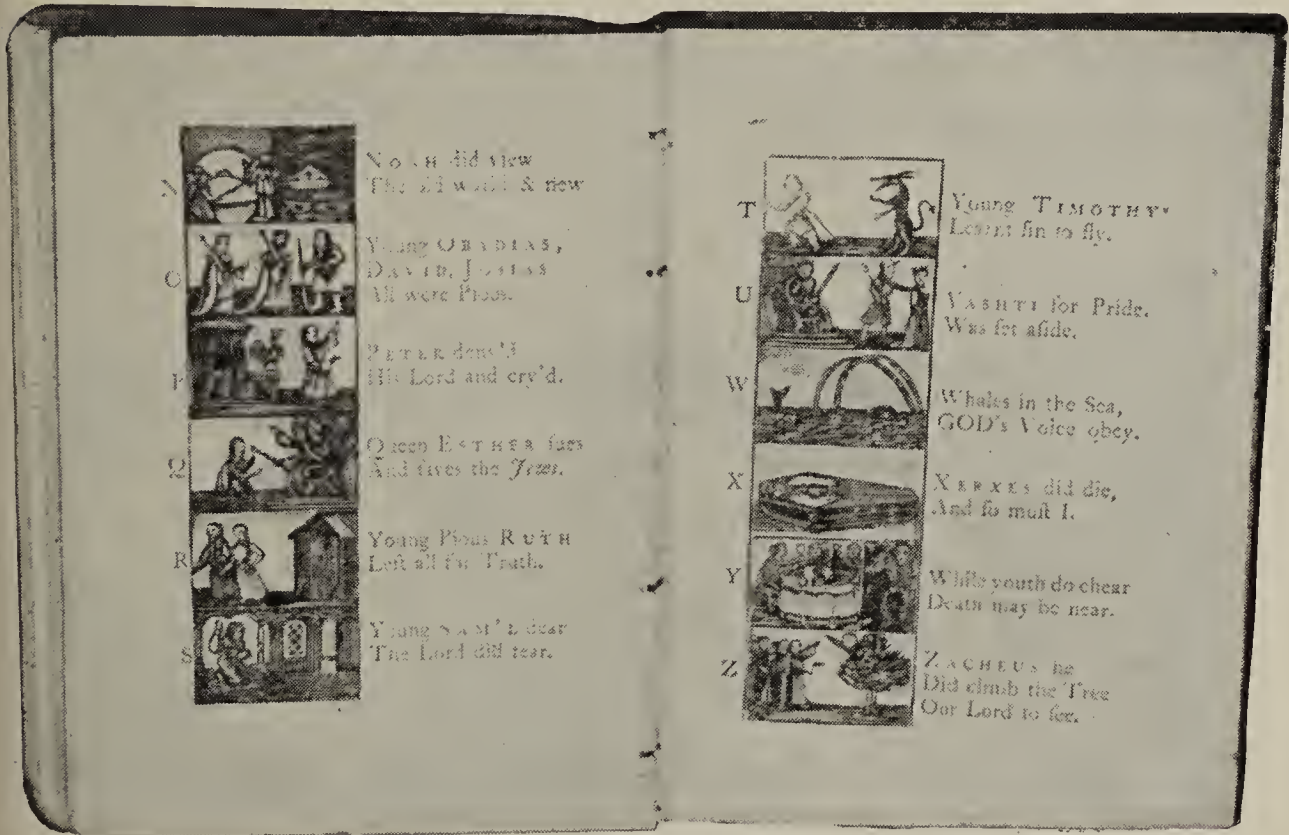 N
NOAH did view
The old world & new
O
Young OBADIAS,
DAVID, JOSIAS
All were Pious.
P
PETER deny'd
His Lord and cry'd.
Q
Queen ESTHER sues
And saves the Jews.
R
Young Pious RUTH
Left all for Truth.
S
Young SAM'L dear
The Lord did fear.
T
Young TIMOTHY
Learnt sin to fly.
U
VASHTI for Pride,
Was set aside.
W
Whales in the Sea,
GOD's Voice obey.
X
XERXES did die,
And so must I.
Y
While youth do chear
Death may be near.
Z
ZACHEUS he
Did climb the Tree
Our Lord to see.